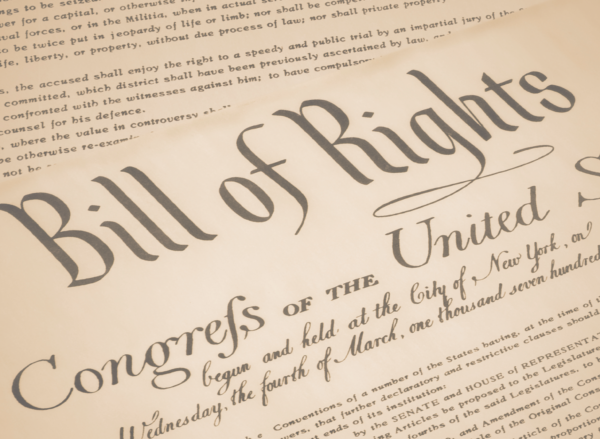 ngs to be seized.
wer for a capital, or otherwise
val forces, or in the Militia, when in actual
o be twice put in jeopardy of life or limb; nor shall be
ife, liberty, or property, without due process of law; nor shall private property
s, the accused shall enjoy the right to a speedy and public trial by an impartial jury of the
committed, which district shall have been previously ascertained by law,
confronted with the witnesses against him; to have compulsory
counsel for his defence.
, where the value in controversy
be otherwise re-exam
not be
Bill of Rights
Congreſs OF THE United S
begun and held at the City of New York, on
Wednesday, the fourth of March, one thousand seven hundred
Conventions of a number of the States having, at the time of
wers, that further declaratory and restrictive clauses should
ends of its institution:
by the SENATE and HOUSE of REPRESENTAT
ing Articles be proposed to the Legislature
fourths of the said Legislatures, to
and Amendment of the Con
icle of the Original Cons
ticle of the Con
proportion